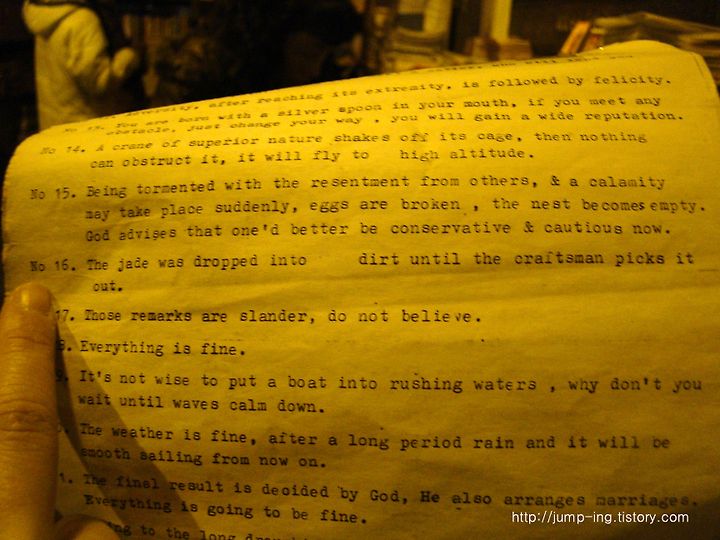 adversity, after reaching its extremity, is followed by felicity.
No 13. You are born with a silver spoon in your mouth, if you meet any
obstacle, just change your way , you will gain a wide reputation.
No 14. A crane of superior nature shakes off its cage, then nothing
can obstruct it, it will fly to high altitude.
No 15. Being tormented with the resentment from others, & a calamity
may take place suddenly, eggs are broken , the nest becomes empty.
God advises that one'd better be conservative & cautious now.
No 16. The jade was dropped into dirt until the craftsman picks it
out.
17. Those remarks are slander, do not believe.
8. Everything is fine.
9. It's not wise to put a boat into rushing waters , why don't you
wait until waves calm down.
0. The weather is fine, after a long period rain and it will be
smooth sailing from now on.
1. The final result is decided by God, He also arranges marriages.
Everything is going to be fine.
to the long
http://jump-ing.tistory.com